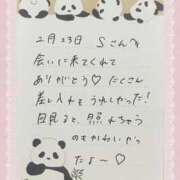 2月23日 Sさんへ
会いに来てくれて
ありがとう♡ たくさん
差し入れもうれしかった!
目見ると、照れちゃう
のもかわいかっ
たよ〜♡